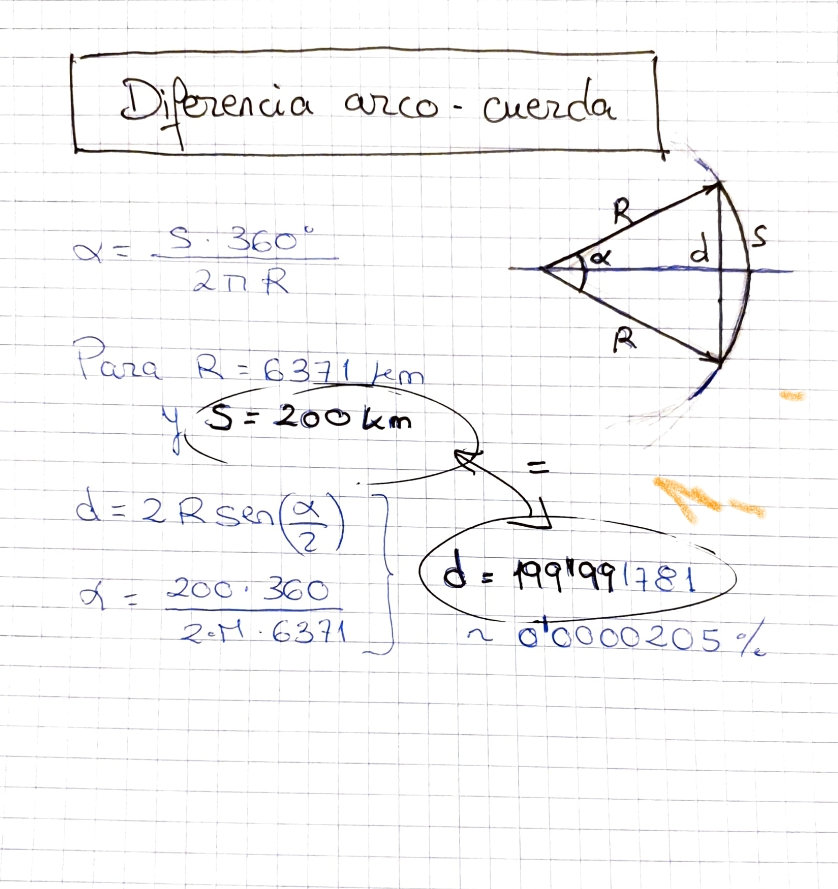 Diferencia arco - cuerda
α = S · 360° / 2 π R
R
α
d
S
R
Para R = 6371 km
y S = 200 km
=
d = 2 R sen(α/2)
α = 200 · 360 / 2 · π · 6371
d = 199'991781
~ 0'0000205 %